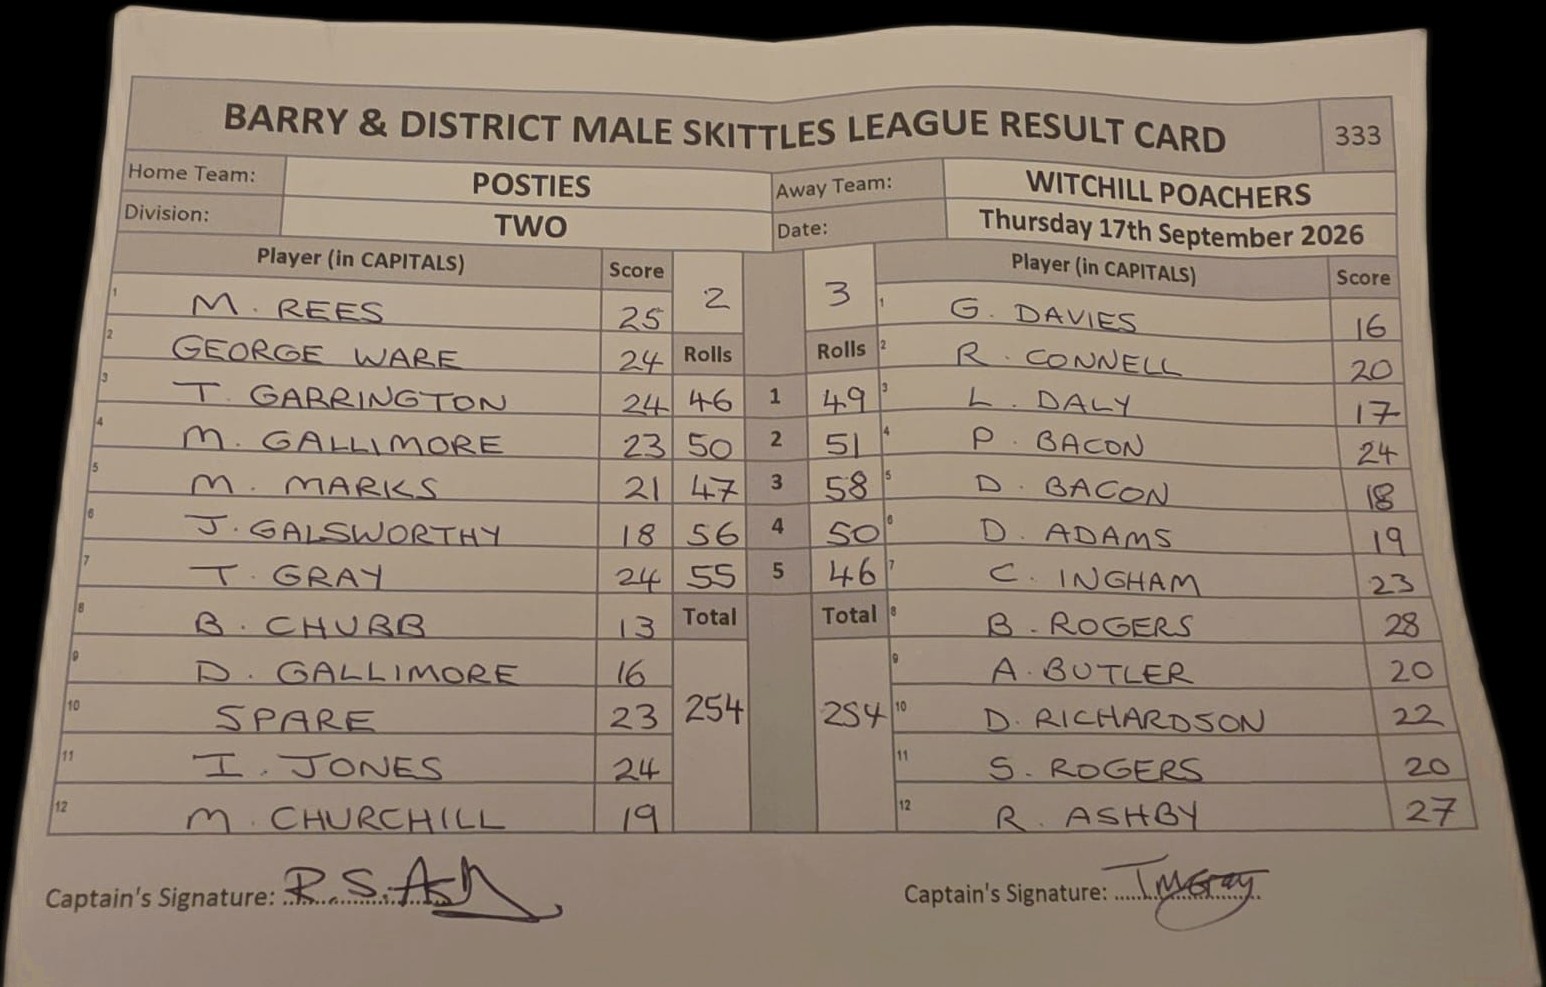 BARRY & DISTRICT MALE SKITTLES LEAGUE RESULT CARD 333
Home Team: POSTIES Away Team: WITCHILL POACHERS
Division: TWO Date: Thursday 17th September 2026
Player (in CAPITALS) Score 2 3 Player (in CAPITALS) Score
1 M. REES 25 1 G. DAVIES 16
2 GEORGE WARE 24 Rolls Rolls 2 R. CONNELL 20
3 T. GARRINGTON 24 46 1 49 3 L. DALY 17
4 M. GALLIMORE 23 50 2 51 4 P. BACON 24
5 M. MARKS 21 47 3 58 5 D. BACON 18
6 J. GALSWORTHY 18 56 4 50 6 D. ADAMS 19
7 T. GRAY 24 55 5 46 7 C. INGHAM 23
8 B. CHUBB 13 Total Total 8 B. ROGERS 28
9 D. GALLIMORE 16 9 A. BUTLER 20
10 SPARE 23 254 254 10 D. RICHARDSON 22
11 I. JONES 24 11 S. ROGERS 20
12 M. CHURCHILL 19 12 R. ASHBY 27
Captain's Signature: R.S. Captain's Signature: